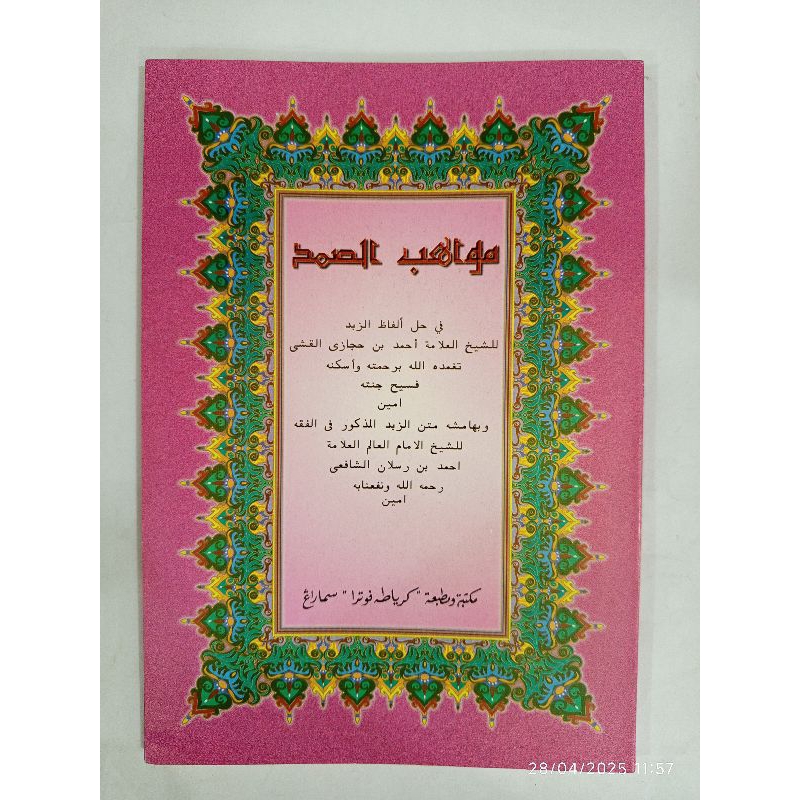 مواهب الصمد
في حل ألفاظ الزبد
للشيخ العلامة أحمد بن حجازى القشى
تغمده الله برحمته وأسكنه
فسيح جنته
امين
وبهامشه متن الزبد المذكور فى الفقه
للشيخ الامام العالم العلامة
احمد بن رسلان الشافعى
رحمه الله ونفعنابه
امين
مكتبة ومطبعة "كرياطه فوترا" سماراڠ
28/04/2025 11:57